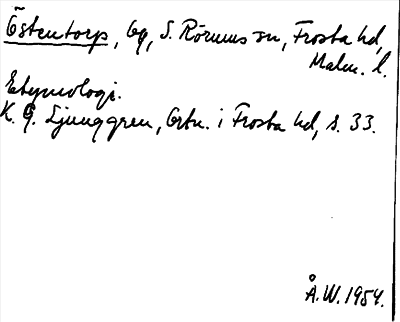 Östentorp, bg, S. Rörums sn, Frosta hd,
Malm. l.
Etymologi.
K. G. Ljunggren, Ortn. i Frosta hd, s. 33.
Å.W. 1954.